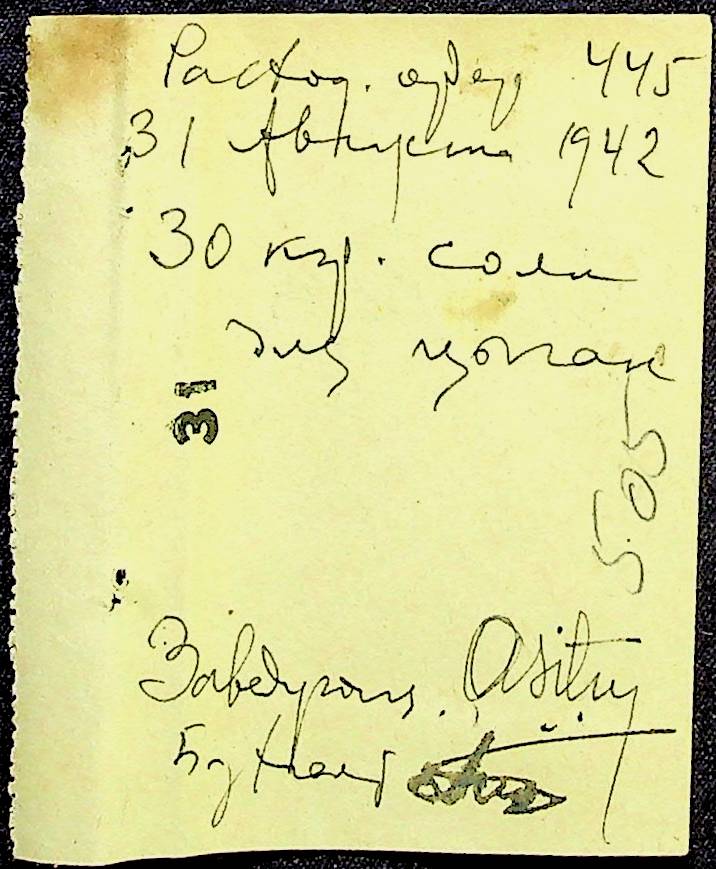 Расход. ордер 445
31 Августа 1942
30 кгр. соли
для цыган
31
505
Заведующ.
Бухгалт